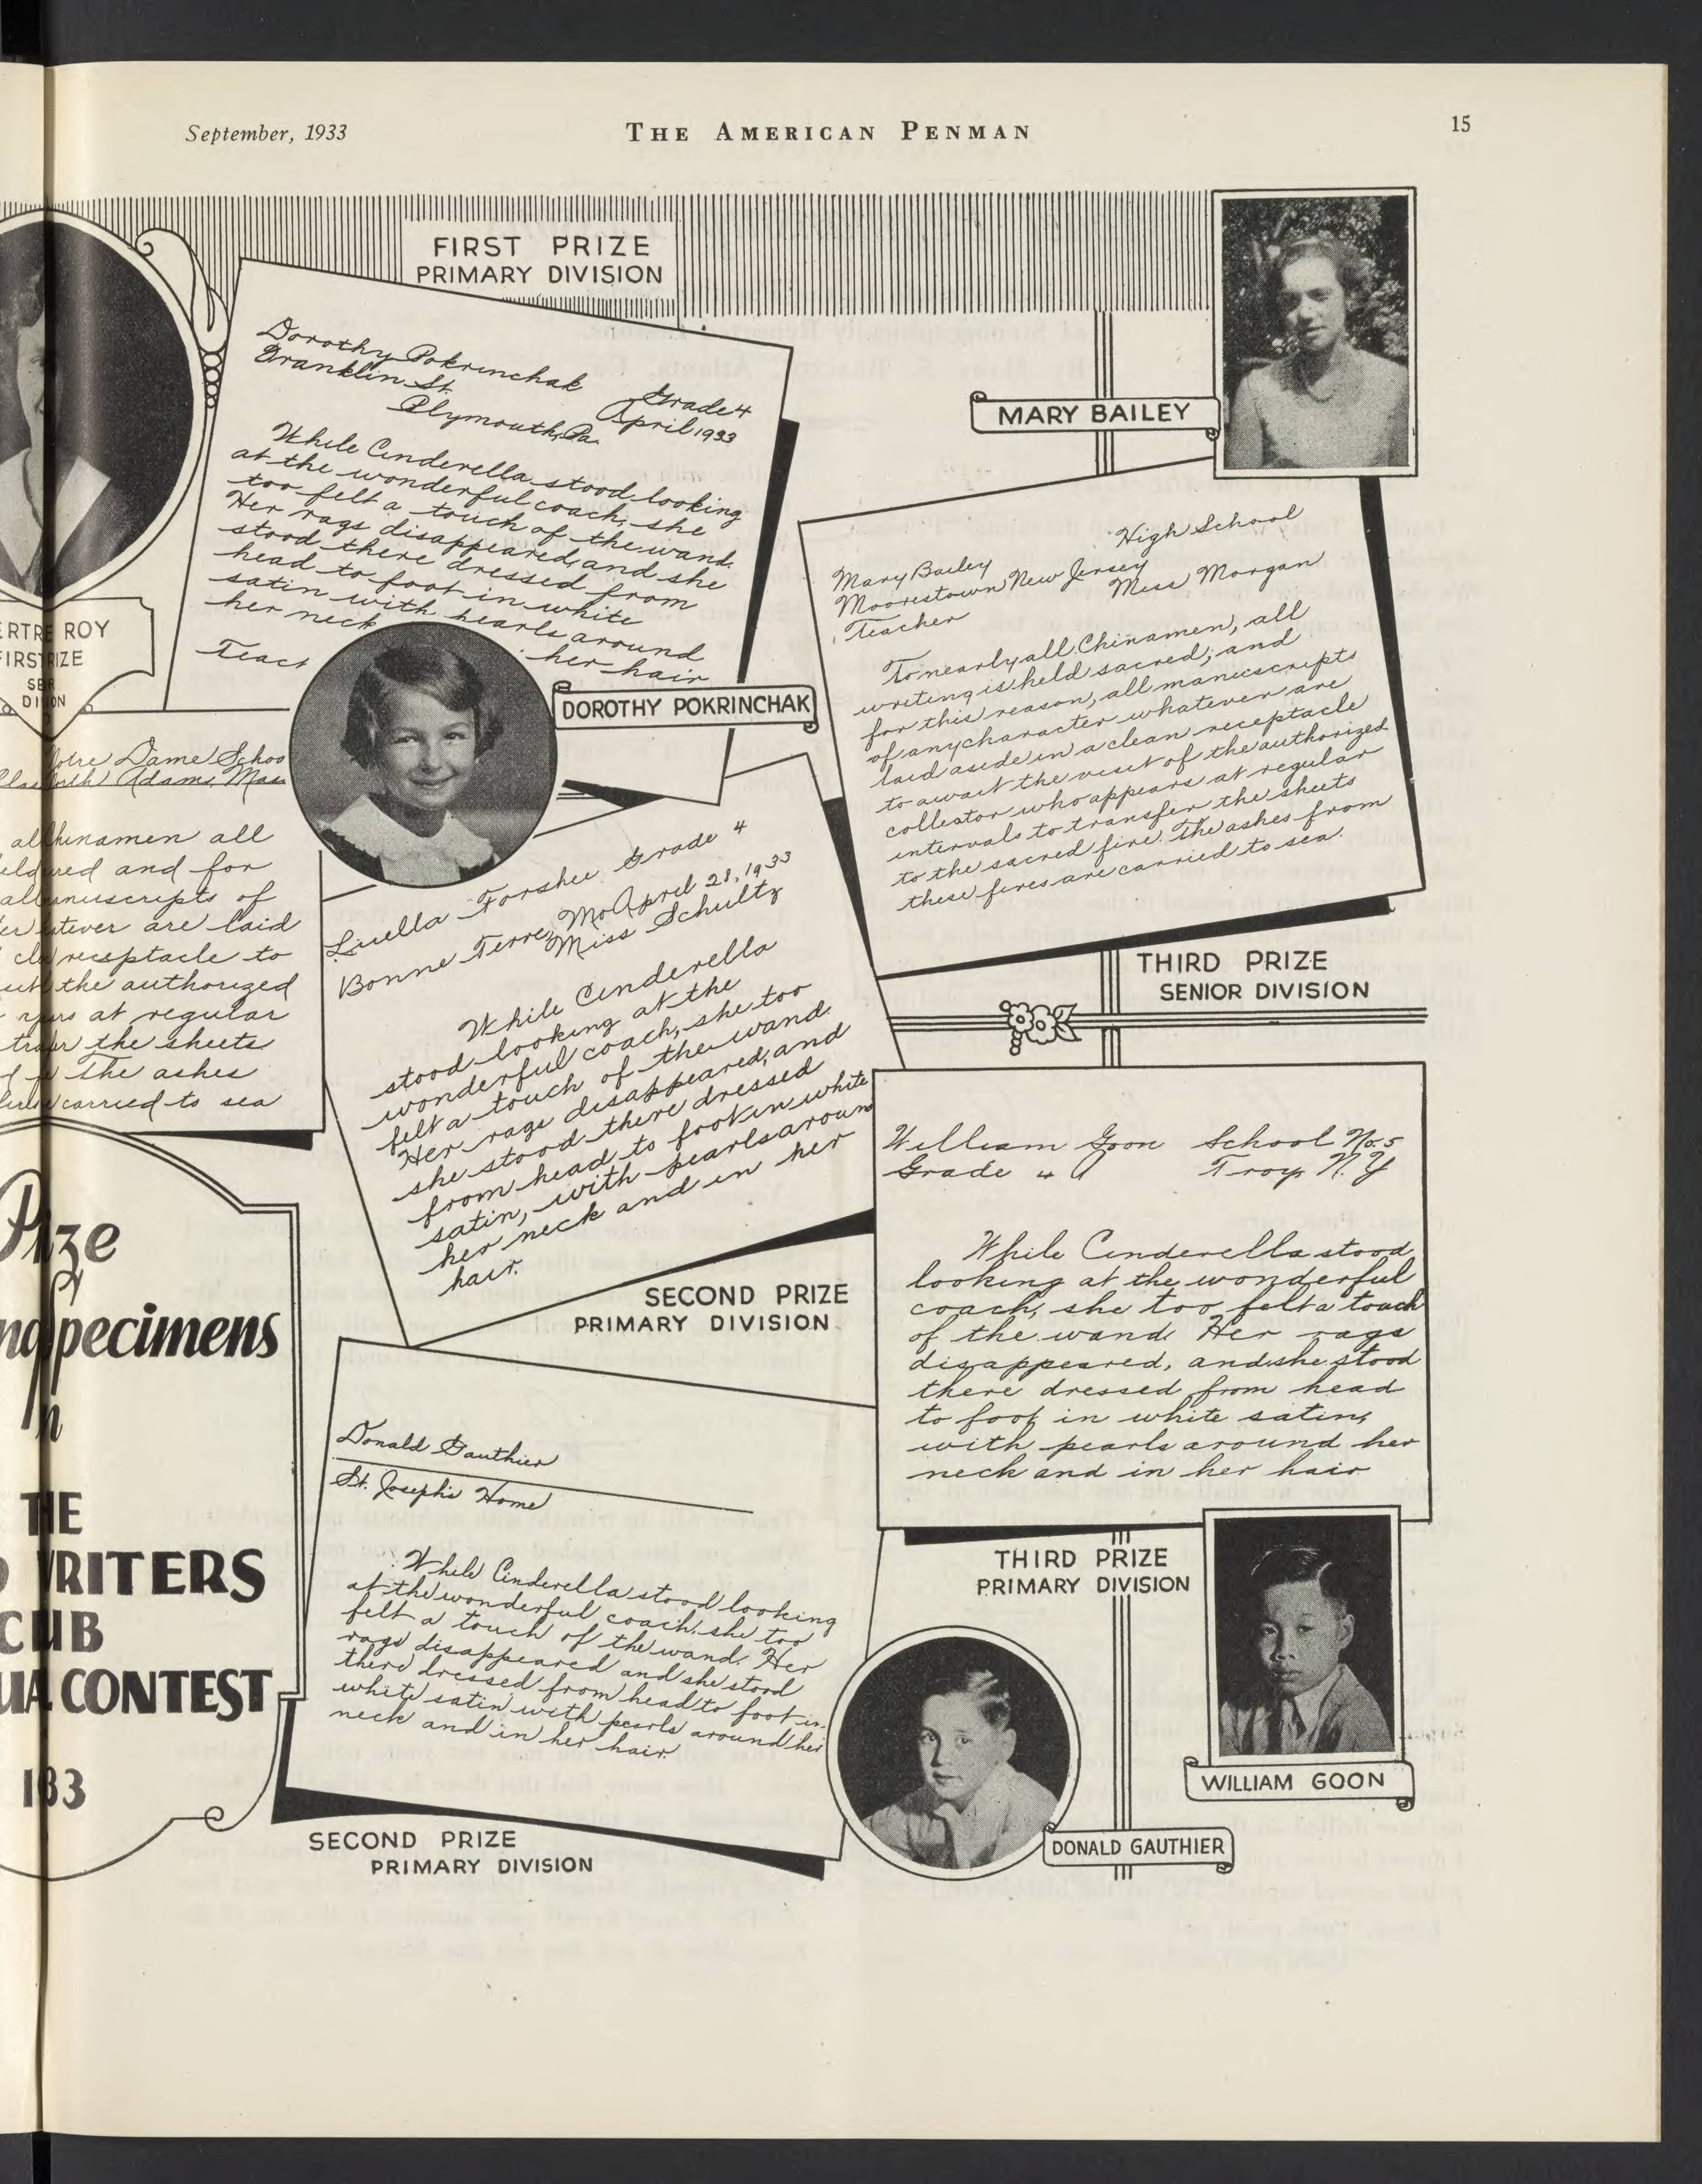 September, 1933
THE AMERICAN PENMAN
15
FIRST PRIZE
PRIMARY DIVISION
Dorothy Pokrinchak
Grade 4
Franklin St.
April 1933
Plymouth, Pa.
While Cinderella stood looking
at the wonderful coach, she
too felt a touch of the wand.
Her rags disappeared, and she
stood there dressed from
head to foot in white
satin with pearls around
her neck
her hair
Teach
DOROTHY POKRINCHAK
MARY BAILEY
High School
Mary Bailey
Moorestown New Jersey
Miss Morgan
Teacher
To nearly all Chinamen, all
writing is held sacred; and
for this reason, all manuscripts
of any character whatever are
laid aside in a clean receptacle
to await the visit of the authorized
collector who appears at regular
intervals to transfer the sheets
to the sacred fire. The ashes from
these fires are carried to sea.
THIRD PRIZE
SENIOR DIVISION
ROY
Dame School
Adams, Mass
all
and for
of
are laid
receptacle to
the authorized
at regular
the sheets
The ashes
carried to sea
Luella Forshee Grade 4
Bonne Terre, Mo April 28, 1933
Miss Schultz
While Cinderella
stood looking at the
wonderful coach, she too
felt a touch of the wand.
Her rags disappeared, and
she stood there dressed
from head to foot in white
satin, with pearls around
her neck and in her
hair.
SECOND PRIZE
PRIMARY DIVISION
William Goon School No. 5
Grade 4 A Troy, N.Y
While Cinderella stood
looking at the wonderful
coach, she too felt a touch
of the wand. Her rags
disappeared, and she stood
there dressed from head
to foot in white satin,
with pearls around her
neck and in her hair
THIRD PRIZE
PRIMARY DIVISION
WILLIAM GOON
Donald Gauthier
St. Joseph's Home
While Cinderella stood looking
at the wonderful coach, she too
felt a touch of the wand. Her
rags disappeared and she stood
there dressed from head to foot in
white satin with pearls around her
neck and in her hair.
SECOND PRIZE
PRIMARY DIVISION
DONALD GAUTHIER
CONTEST